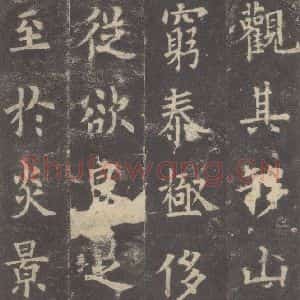 觀其移山
窮泰極侈
從欲良足
至於炎景
Shufawang.CN